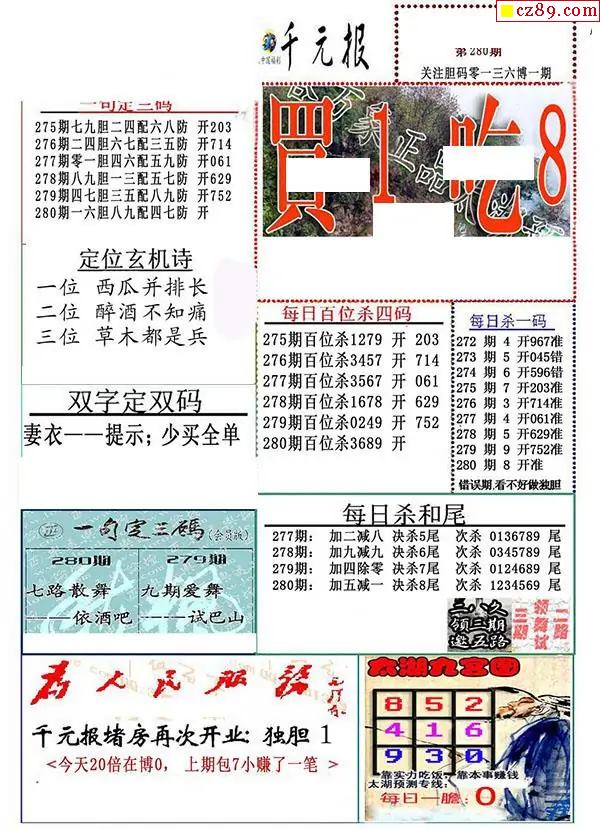 cz89.com
千元报
第280期
关注胆码零一三六博一期
一句定三码
275期七九胆二四配六八防 开203
276期二四胆六七配三五防 开714
277期零一胆四六配五九防 开061
278期八九胆一三配五七防 开629
279期四七胆三五配八九防 开752
280期一六胆八九配四七防 开
買1吃8
定位玄机诗
一位 西瓜并排长
二位 醉酒不知痛
三位 草木都是兵
每日百位杀四码
275期百位杀1279 开 203
276期百位杀3457 开 714
277期百位杀3567 开 061
278期百位杀1678 开 629
279期百位杀0249 开 752
280期百位杀3689 开
每日杀一码
272 期 4 开967准
273 期 5 开045错
274 期 6 开596错
275 期 7 开203准
276 期 3 开714准
277 期 4 开061准
278 期 5 开629准
279 期 9 开752准
280 期 8 开准
错误期,看不好做独胆
双字定双码
妻衣——提示;少买全单
每日杀和尾
277期: 加二减八 决杀5尾 次杀 0136789 尾
278期: 加九减九 决杀6尾 次杀 0345789 尾
279期: 加四除零 决杀7尾 次杀 0124689 尾
280期: 加五减一 决杀8尾 次杀 1234569 尾
正
一句定三碼(会员版)
280期
七路散舞
——依酒吧
279期
九期爱舞
——试巴山
三八久
领二期
邀五路
三期
领舞试
二路
为人民服务
千元报堵房再次开业: 独胆 1
<今天20倍在博0, 上期包7小赚了一笔 >
太湖九宫图
8 5 2
4 1 6
9 3 0
靠实力吃饭, 靠本事赚钱
太湖预测专线:
每日一胆: 0